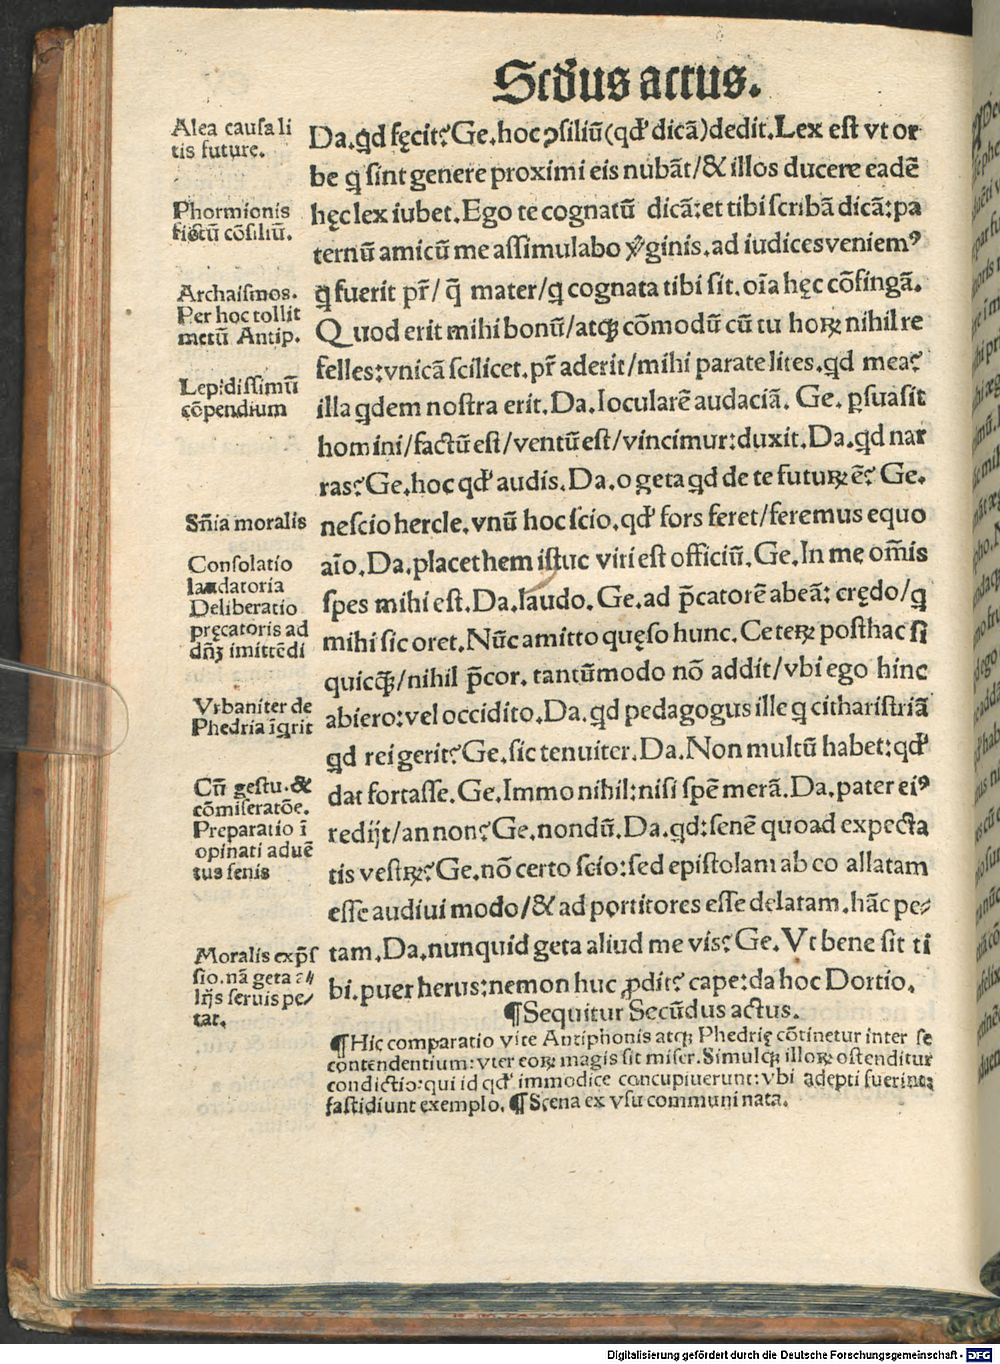 Scd̄us actus.
Alea causa li
tis future.
Phormionis
fictū cōsiliū.
Archaismos.
Per hoc tollit
metū Antip.
Lepidissimū
cōpendium
Sn̄ia moralis
Consolatio
laudatoria
Deliberatio
pręcatoris ad
dn̄ꝫ imittēdi
Vrbaniter de
Phedria īq̄rit
Cū gestu. &
cōmiseratōe.
Preparatio ī
opinati aduē
tus senis
Moralis exp̄s
sio. nā geta a//
lijs seruis pe/
tat.
Da. qd fęcit? Ge. hoc ꝯsiliū (qd' dicā) dedit. Lex est vt or
be q sint genere proximi eis nubāt/& illos ducere eadē
hęc lex iubet. Ego te cognatū dicā: et tibi scribā dicā: pa
ternū amicū me assimulabo v̄ginis. ad iudices veniemꝰ
q fuerit pr̄/ q̄ mater/q cognata tibi sit. oīa hęc cōfingā.
Quod erit mihi bonū/atqꝫ cōmodū cū tu hoꝝ nihil re
felles: vnicā scilicet. pr̄ aderit/mihi parate lites. qd mea?
illa qdem nostra erit. Da. Iocularē audaciā. Ge. ꝑsuasit
homini/factū est/ventū est/vincimur: duxit. Da. qd nar
ras? Ge. hoc qd' audis. Da. o geta qd de te futuꝝ ē? Ge.
nescio hercle. vnū hoc scio. qd' fors feret/feremus equo
aīo. Da. placet hem istuc viri est officiū. Ge. In me om̄is
spes mihi est. Da. laudo. Ge. ad p̄catorē abeā: crędo/q
mihi sic oret. Nūc amitto quęso hunc. Ceteꝝ posthac si
quicqꝫ/nihil p̄cor. tantūmodo nō addit/vbi ego hinc
abiero: vel occidito. Da. qd pedagogus ille q citharistriā
qd rei gerit? Ge. sic tenuiter. Da. Non multū habet: qd'
dat fortasse. Ge. Immo nihil: nisi spē merā. Da. pater eiꝰ
redijt/an non? Ge. nondū. Da. qd: senē quoad expecta
tis vestꝝ? Ge. nō certo scio: sed epistolam ab eo allatam
esse audiui modo/& ad portitores esse delatam. hāc pe/
tam. Da. nunquid geta aliud me vis? Ge. Vt bene sit ti
bi. puer herus: nemon huc ꝓdit? cape: da hoc Dortio.
¶Sequitur Secūdus actus.
¶Hic comparatio vite Antiphonis atqꝫ Phedrię cōtinetur inter se
contendentium: vter eoꝝ magis sit miser. Simulqꝫ illoꝝ ostenditur
condictio: qui id qd' immodice concupiuerunt: vbi adepti fuerint
fastidiunt exemplo. ¶Scena ex vsu communi nata.
Digitalisierung gefördert durch die Deutsche Forschungsgemeinschaft - DFG